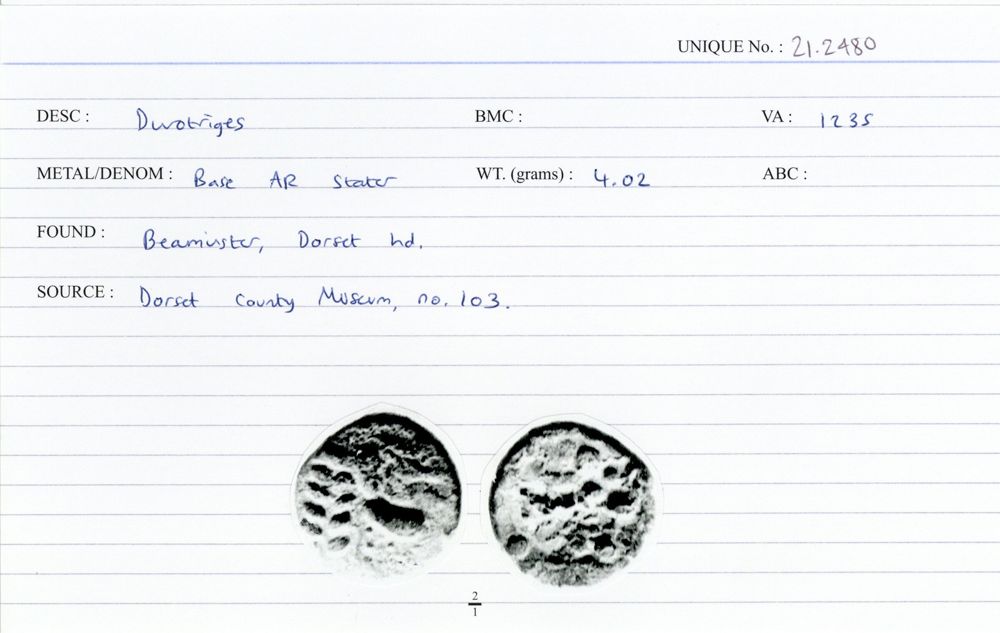 UNIQUE No. : 21.2480
DESC : Durotriges BMC : VA : 1235
METAL/DENOM : Base AR Stater WT. (grams) : 4.02 ABC :
FOUND : Beaminster, Dorset hd.
SOURCE : Dorset County Museum, no. 103.
2
1